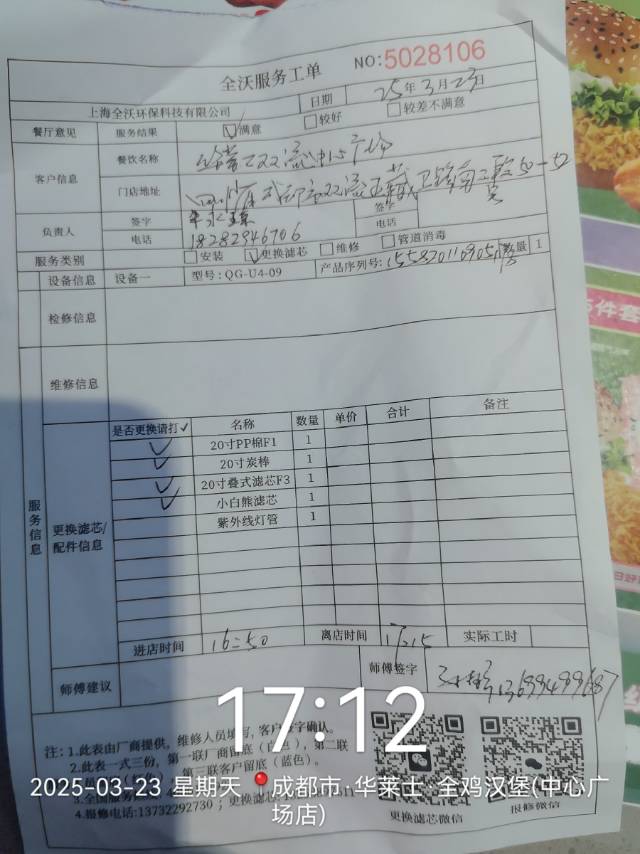 全沃服务工单 NO:5028106
上海全沃环保科技有限公司 日期 25年3月23日
餐厅意见 服务结果 ☑满意 □较好 □较差不满意
客户信息 餐饮名称
门店地址
负责人 签字 签字
电话 18282946706 电话
服务类别 □安装 ☑更换滤芯 □维修 □管道消毒
设备信息 设备一 型号:QG-U4-09 产品序列号: 数量 1
检修信息
维修信息
服务信息
更换滤芯/配件信息
是否更换请打✓ 名称 数量 单价 合计 备注
✓ 20寸PP棉F1 1
✓ 20寸炭棒 1
✓ 20寸叠式滤芯F3 1
✓ 小白熊滤芯 1
紫外线灯管 1
进店时间 16:50 离店时间 17:15 实际工时
师傅建议 师傅签字 13699499687
17:12
注:1.此表由厂商提供,维修人员填写,客户签字确认。
2.此表一式三份,第一联厂商留底(白色),第二联
第三联客户留底(蓝色)。
2025-03-23 星期天 成都市·华莱士·全鸡汉堡(中心广场店)
4.报修电话:13732292730;更换滤芯
更换滤芯微信 报修微信